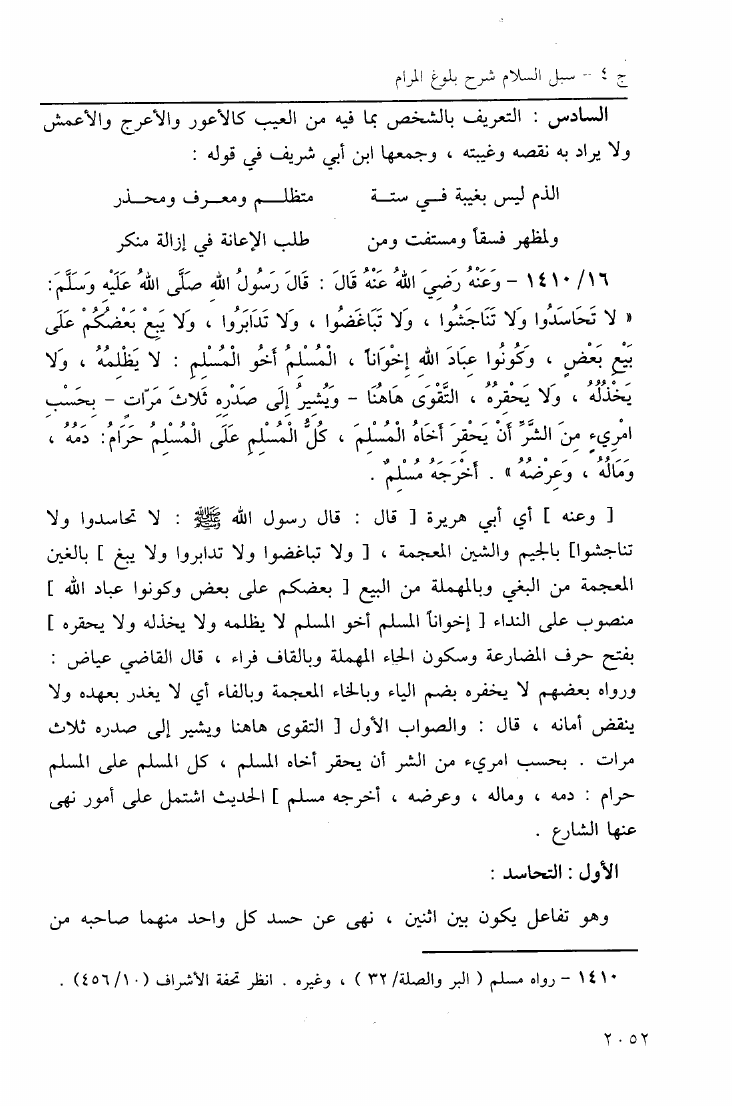 ج ٤ - سبل السلام شرح بلوغ المرام
السادس : التعريف بالشخص بما فيه من العيب كالأعور والأعرج والأعمش
ولا يراد به نقصه وغيبته ، وجمعها ابن أبي شريف في قوله :
الذم ليس بغيبة فـــي ستــة متظلــــم ومعــرف ومحــذر
ولمظهر فسقاً ومستفت ومن طلب الإعانة في إزالة منكر
١٤١٠/١٦ - وَعَنْهُ رَضِيَ اللهُ عَنْهُ قَالَ : قَالَ رَسُولُ اللهِ صَلَّى اللهُ عَلَيْهِ وَسَلَّمَ:
« لا تَحَاسَدُوا وَلا تَنَاجَشُوا ، وَلا تَبَاغَضُوا ، وَلا تَدَابَرُوا ، وَلا يَبِعْ بَعْضُكُمْ عَلَى
بَيْعِ بَعْضٍ ، وَكُونُوا عِبَادَ اللهِ إِخْوَاناً ، الْمُسْلِمُ أَخُو الْمُسْلِمِ : لا يَظْلِمُهُ ، وَلا
يَخْذُلُهُ ، وَلا يَحْقِرُهُ ، التَّقْوَى هَاهُنَا - وَيُشِيرُ إِلَى صَدْرِهِ ثَلاثَ مَرَّات - بِحَسْبِ
امْرِيءٍ مِنَ الشَّرِّ أَنْ يَحْقِرَ أَخَاهُ الْمُسْلِمَ ، كُلُّ الْمُسْلِمِ عَلَى الْمُسْلِمِ حَرَامٌ: دَمُهُ ،
وَمَالُهُ ، وَعِرْضُهُ » . أَخْرَجَهُ مُسْلِمٌ .
[ وعنه ] أي أبي هريرة [ قال : قال رسول الله ﷺ : لا تحاسدوا ولا
تناجشوا] بالجيم والشين المعجمة ، [ ولا تباغضوا ولا تدابروا ولا يبغ ] بالغين
المعجمة من البغي وبالمهملة من البيع [ بعضكم على بعض وكونوا عباد الله ]
منصوب على النداء [ إخواناً المسلم أخو المسلم لا يظلمه ولا يخذله ولا يحقره ]
بفتح حرف المضارعة وسكون الحاء المهملة وبالقاف فراء ، قال القاضي عياض :
ورواه بعضهم لا يخفره بضم الياء وبالخاء المعجمة وبالفاء أي لا يغدر بعهده ولا
ينقض أمانه ، قال : والصواب الأول [ التقوى هاهنا ويشير إلى صدره ثلاث
مرات . بحسب امريء من الشر أن يحقر أخاه المسلم ، كل المسلم على المسلم
حرام : دمه ، وماله ، وعرضه ، أخرجه مسلم ] الحديث اشتمل على أمور نهى
عنها الشارع .
الأول : التحاسد :
وهو تفاعل يكون بين اثنين ، نهى عن حسد كل واحد منهما صاحبه من
١٤١٠ - رواه مسلم ( البر والصلة/ ٣٢ ) ، وغيره . انظر تحفة الأشراف (٤٥٦/١٠) .
٢٠٥٢